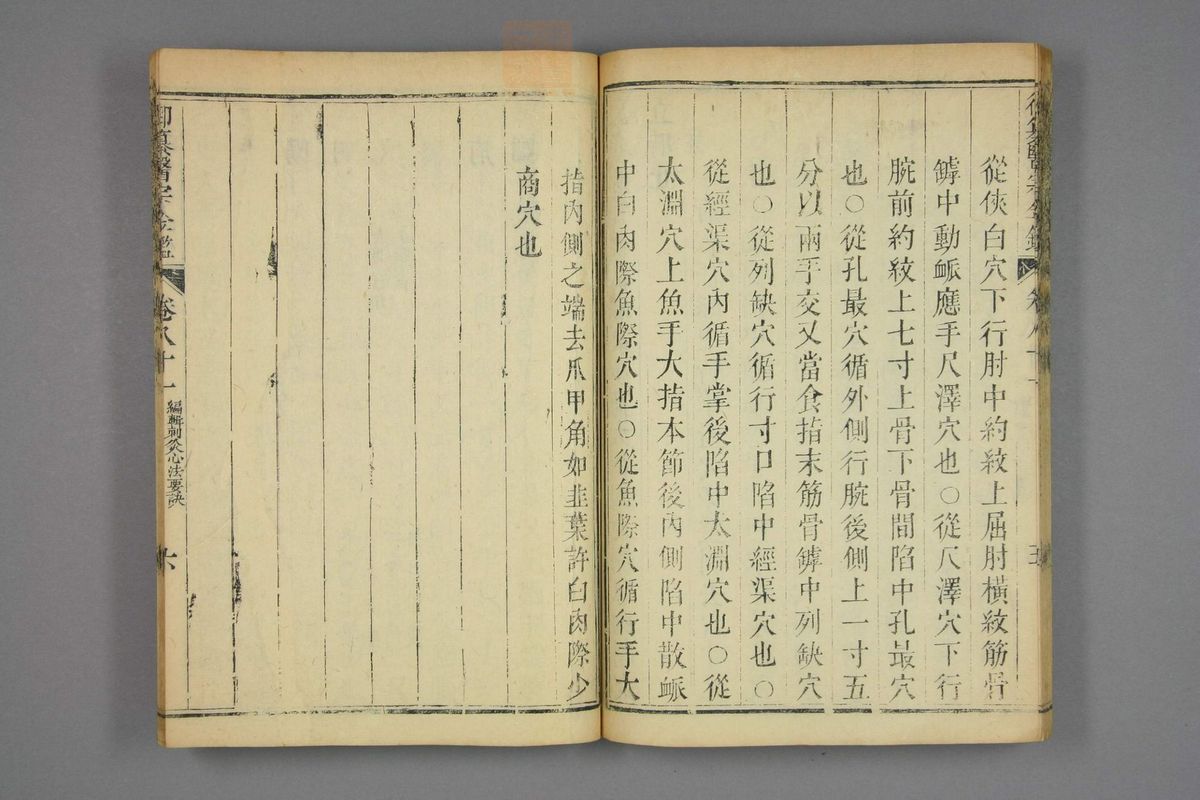 從俠白穴下行肘中約紋上屈肘橫紋筋骨
罅中動脈應手尺澤穴也○從尺澤穴下行
腕前約紋上七寸上骨下骨間陷中孔最穴
也○從孔最穴循外側行腕後側上一寸五
分以兩手交叉當食指末筋骨罅中列缺穴
也○從列缺穴循行寸口陷中經渠穴也○
從經渠穴內循手掌後陷中太淵穴也○從
太淵穴上魚手大指本節後內側陷中散脈
中白肉際魚際穴也○從魚際穴循行手大
指內側之端去爪甲角如韭葉許白肉際少
商穴也
御纂醫宗金鑑
卷八十一
編輯刺灸心法要訣
六